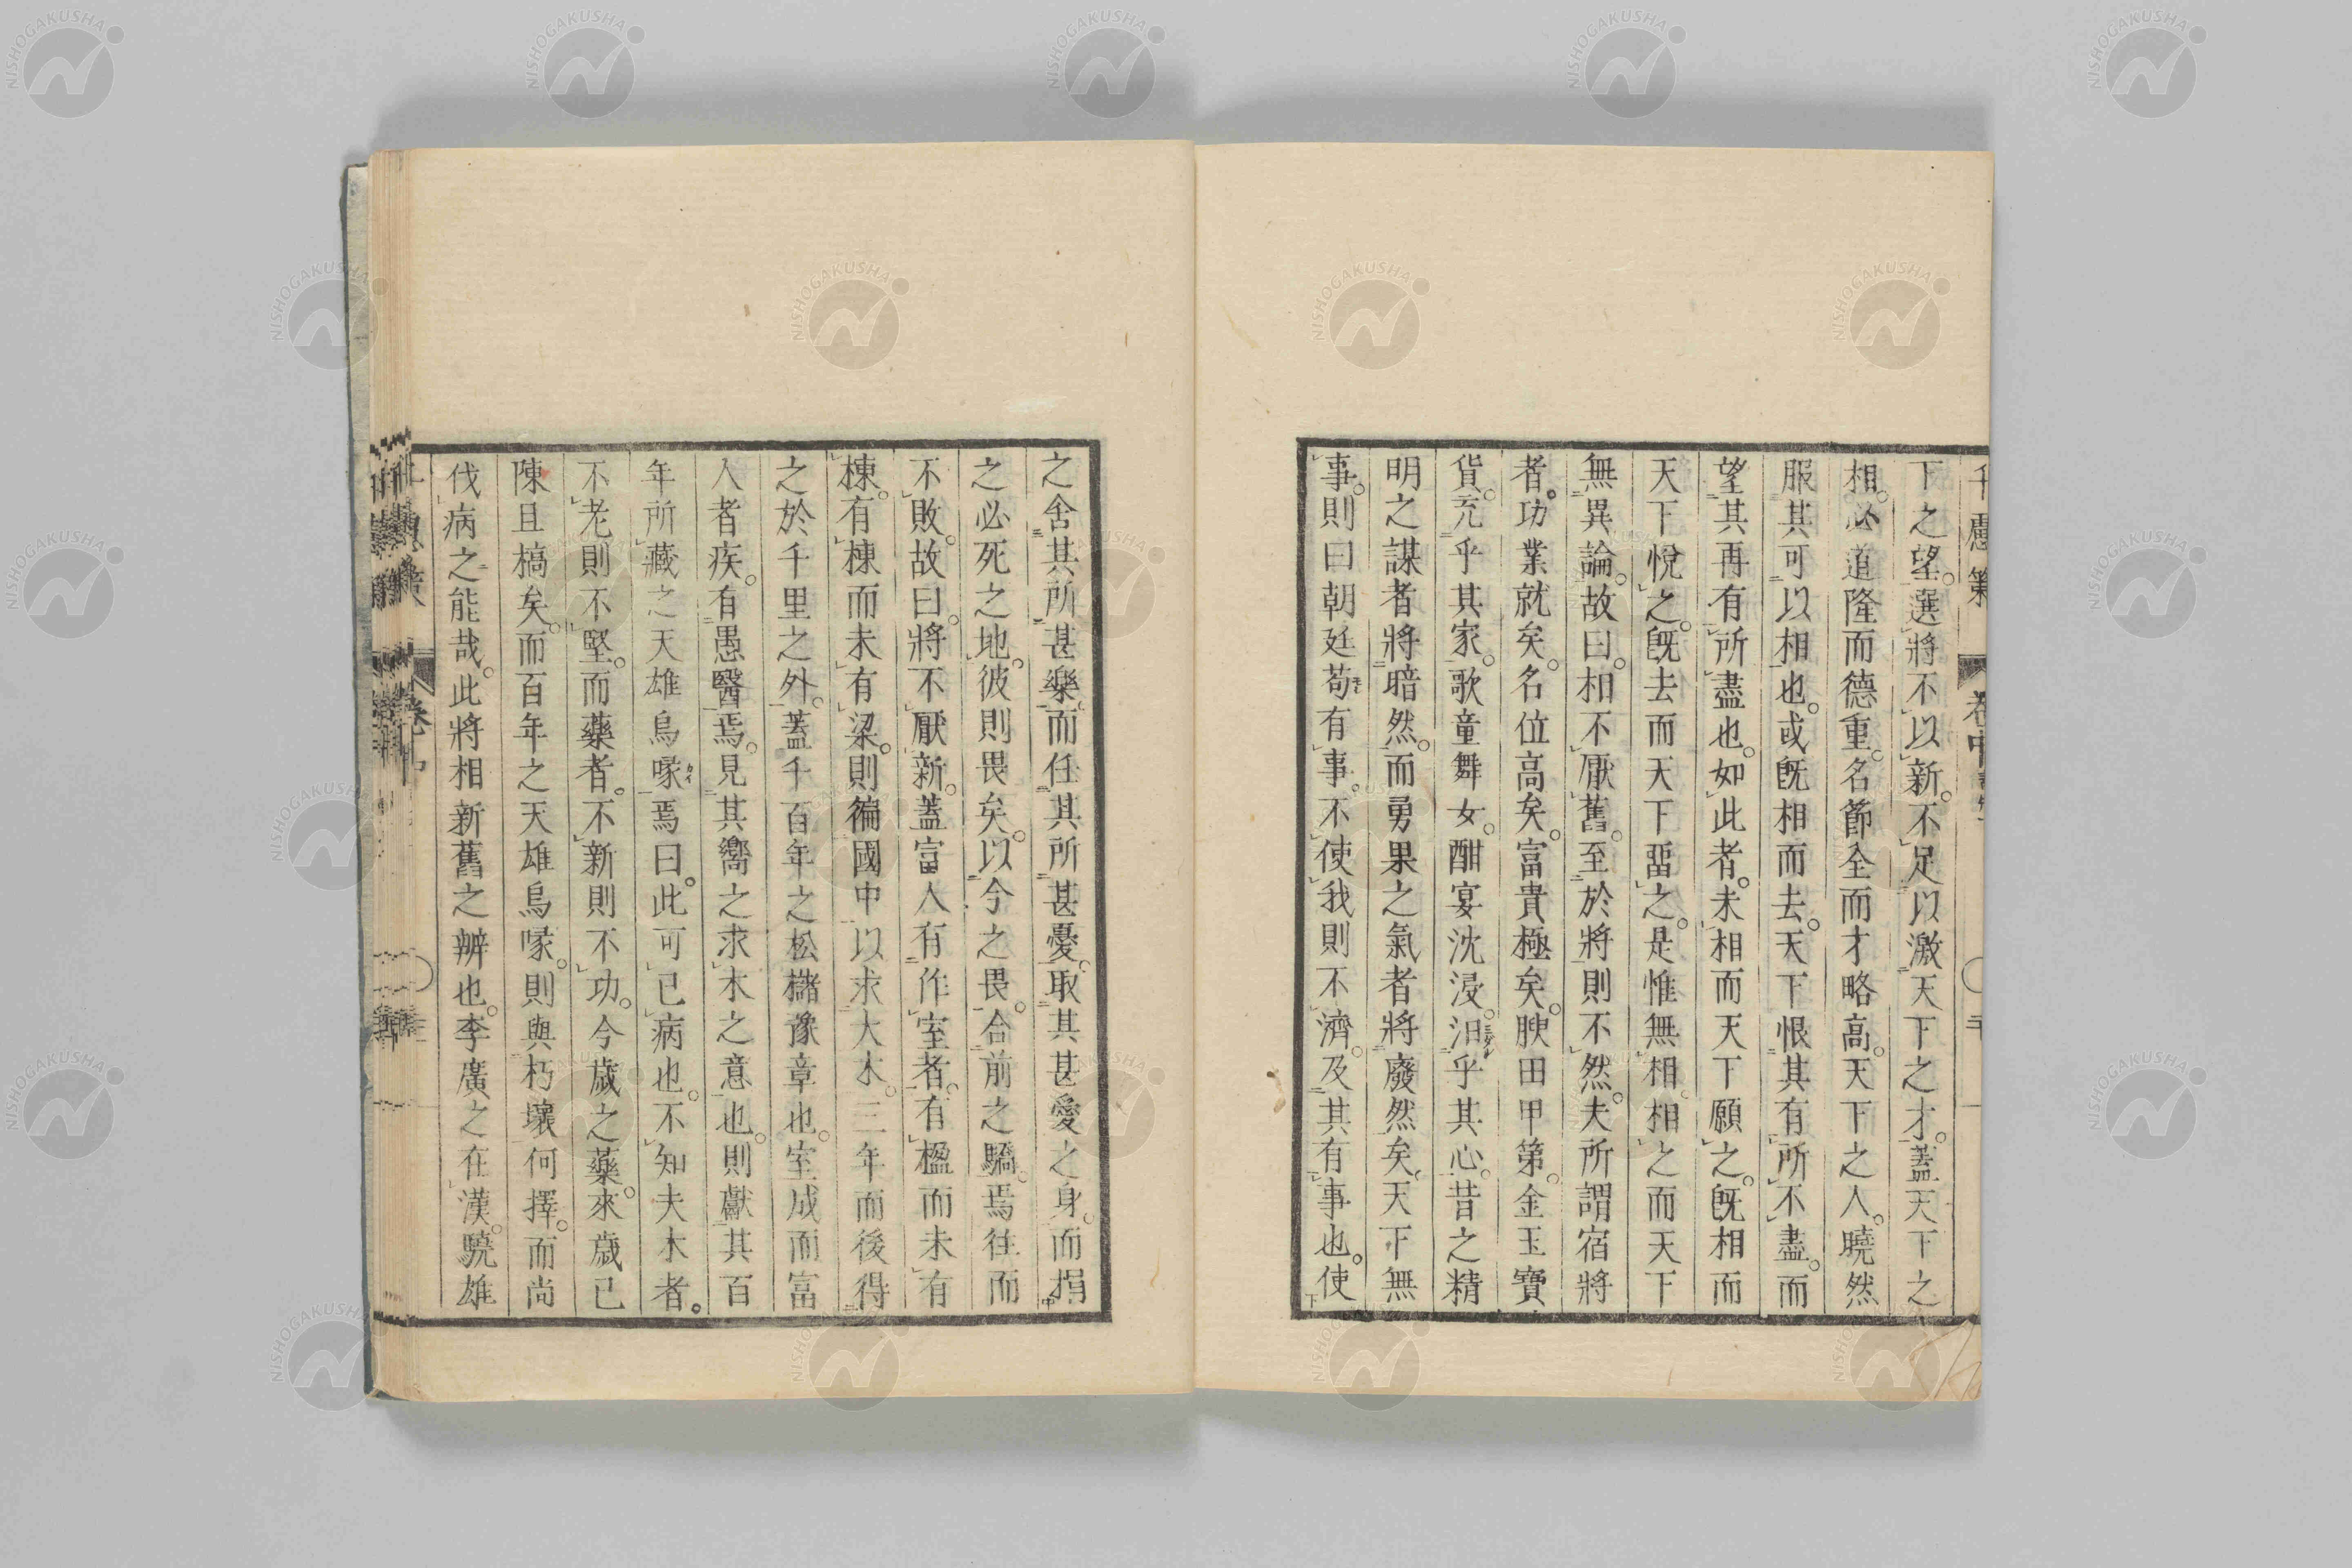 下之望。選將不以新。不足以激天下之才。蓋天下之
相。必道隆而德重。名節全而才略高。天下之人。曉然
服其可以相也。或既相而去。天下恨其有所不盡。而
望其再有所盡也。如此者。未相而天下願之。既相而
天下悅之。既去而天下畱之。是惟無相。相之而天下
無異論。故曰。相不厭舊。至於將則不然。夫所謂宿將
者。功業就矣。名位高矣。富貴極矣。腴田甲第。金玉寶
貨。充乎其家。歌童舞女。酣宴沈浸。汨乎其心。昔之精
明之謀者將暗然。而勇果之氣者將廢然矣。天下無
事。則曰朝廷苟有事。不使我則不濟。及其有事也。使
之舍其所甚樂而任其所甚憂。取其甚愛之身。而捐
之必死之地。彼則畏矣。以今之畏。合前之驕。焉往而
不敗。故曰。將不厭新。蓋富人有作室者。有楹而未有
棟。有棟而未有梁。則徧國中以求大木。三年而後得
之於千里之外。蓋千百年之松櫧豫章也。室成而富
人者疾。有愚醫焉。見其嚮之求木之意也。則獻其百
年所藏之天雄烏喙焉曰。此可已病也。不知夫木者。
不老則不堅。而藥者。不新則不功。今歲之藥。來歲已
陳且槁矣。而百年之天雄烏喙。則與朽壤何擇。而尚
伐病之能哉。此將相新舊之辨也。李廣之在漢。驍雄
NISHOGAKUSHA